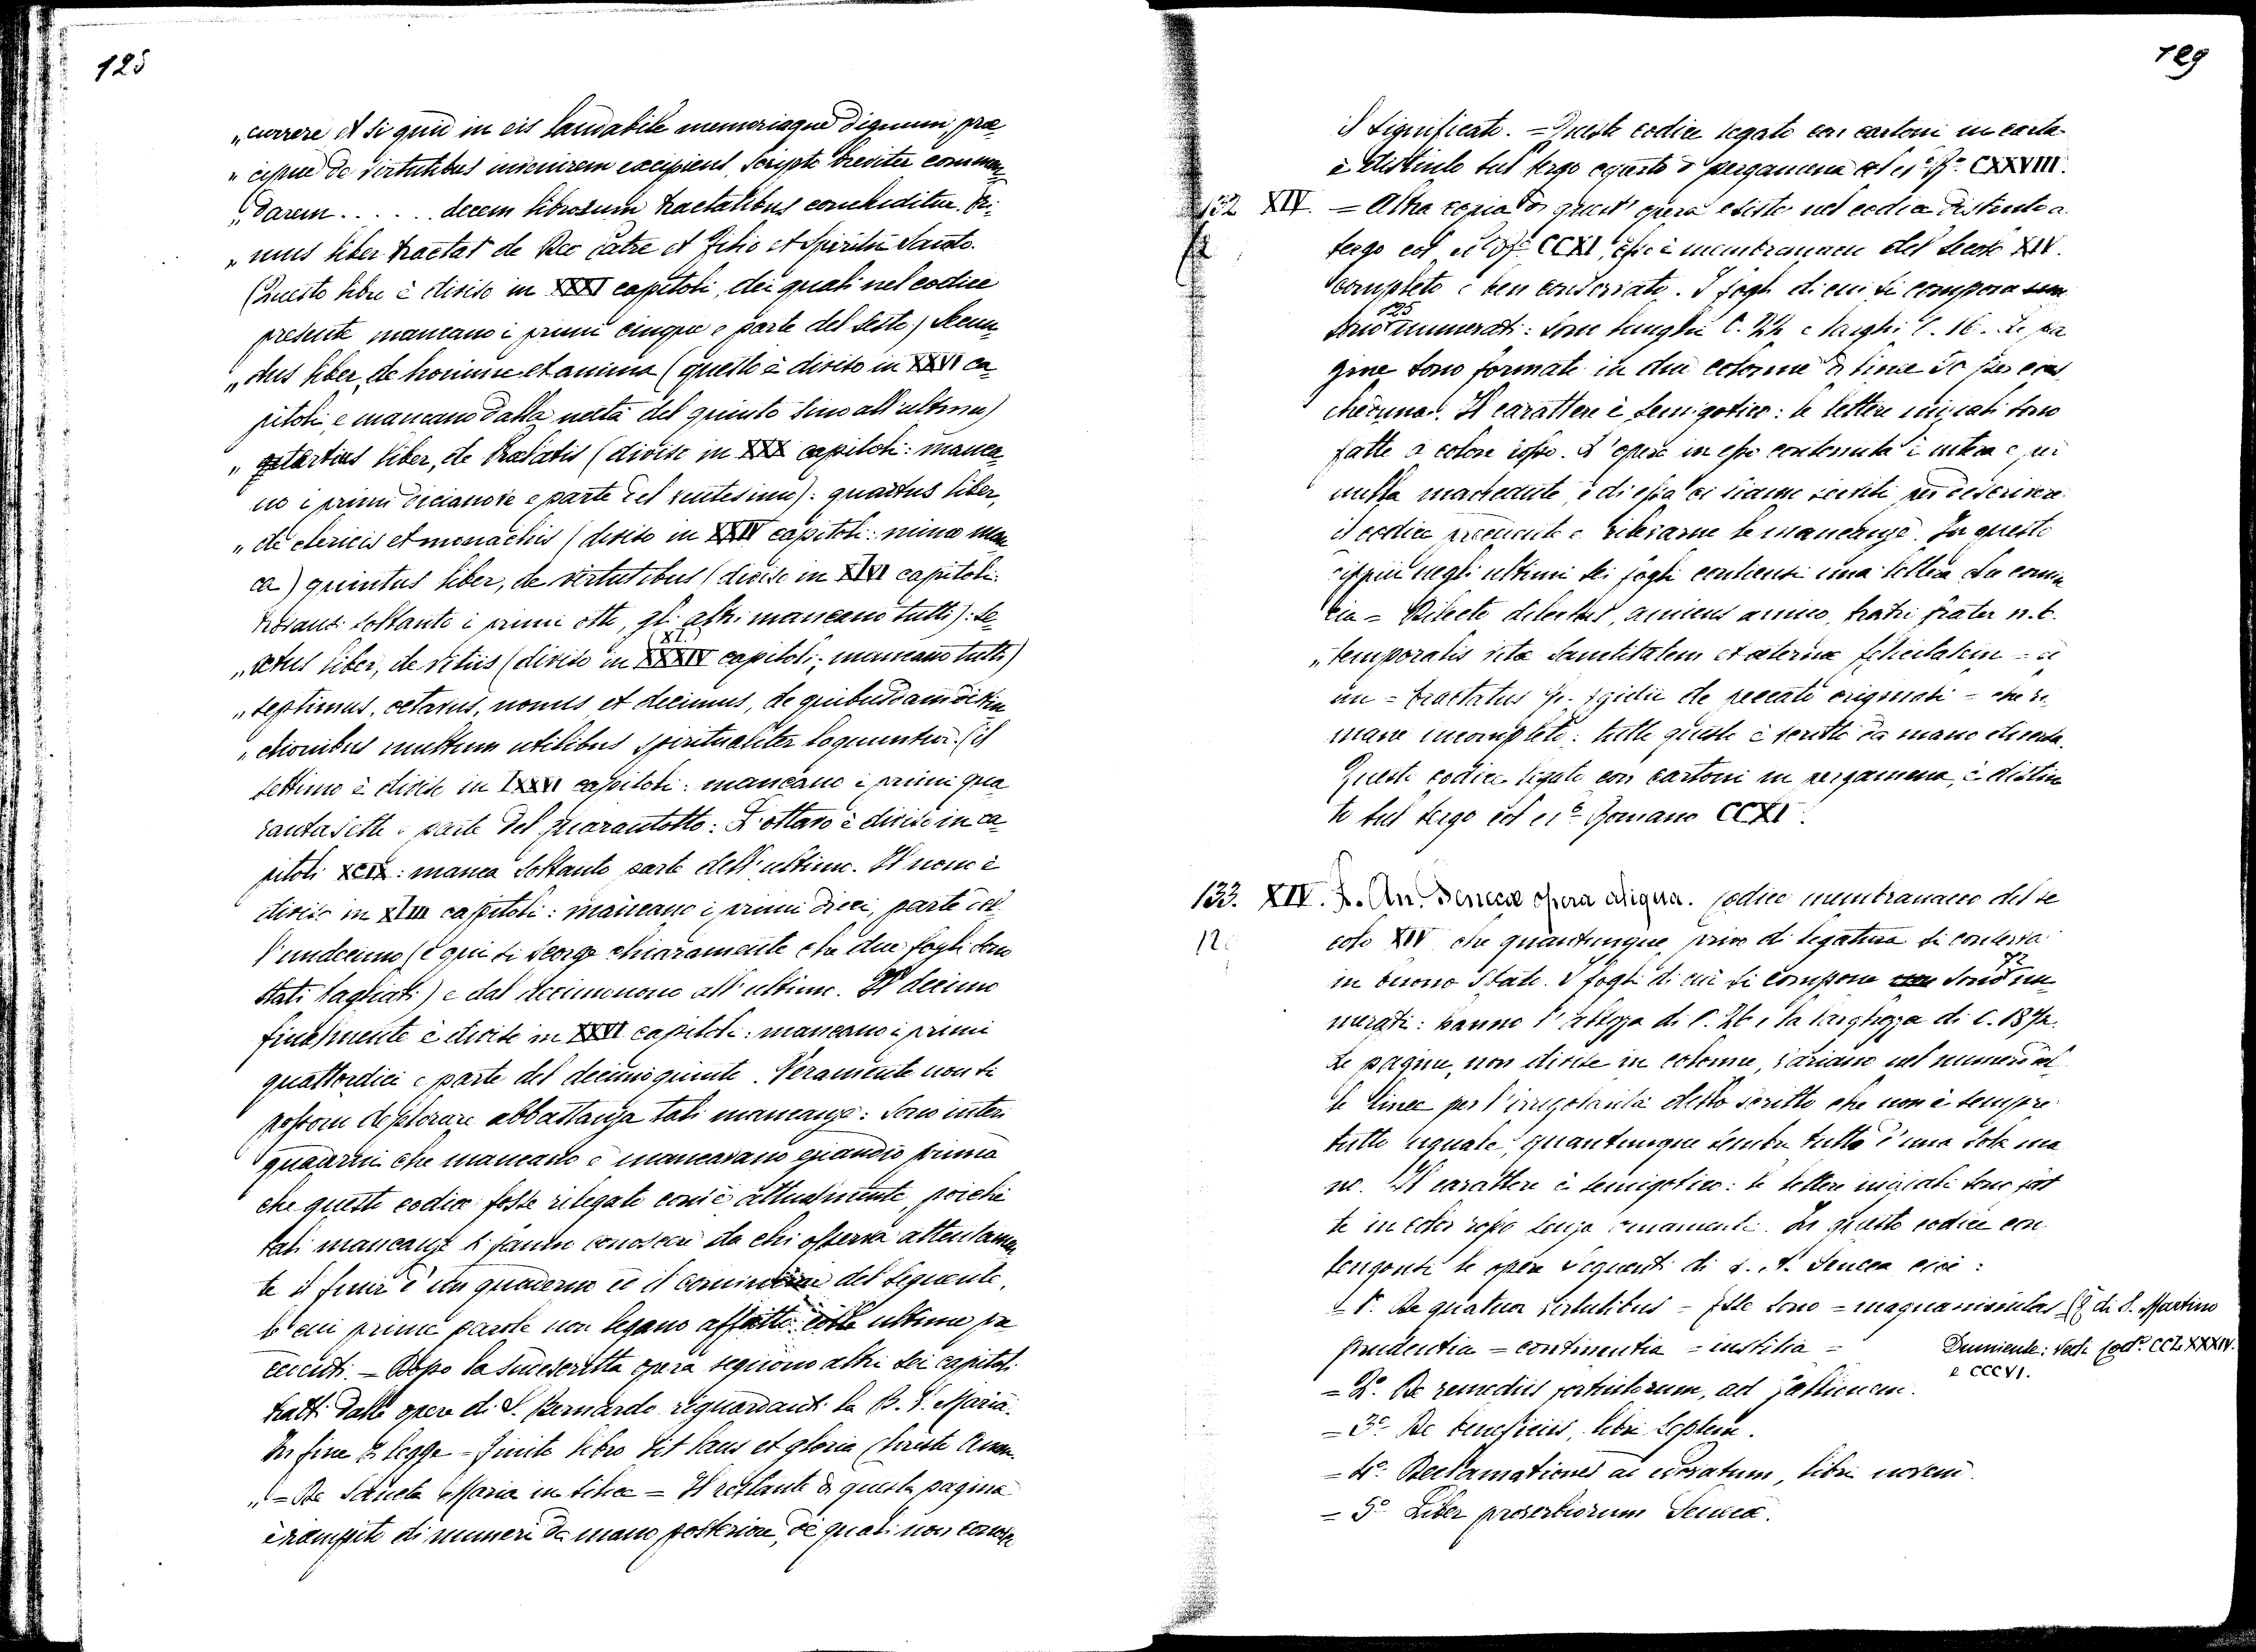 125
„currere et si quid in eis laudabile memoriaque dignum, præ-
„cipue de virtutibus invenirem excipiens scripto breviter commen-
„darem . . . . . . decem librorum tractatibus concluditur. Pri-
„mus liber tractat de Deo Patre et Filio et Spiritu Sancto.
(Questo libro è diviso in XXXI capitoli, dei quali nel codice
presente mancano i primi cinque e parte del sesto) Secun-
„dus liber, de homine et anima (questo è diviso in XXVI ca-
pitoli, e mancano dalla metà del quinto sino all'ultimo)
„tertius liber, de Prælatis (diviso in XXX capitoli: manca-
no i primi dicianove e parte del ventesimo): quartus liber,
„de clericis et monachis (diviso in XXIV capitoli: niuno man-
ca) quintus liber, de virtutibus (diviso in XLVI capitoli:
trovansi soltanto i primi otto, gli altri mancano tutti): se-
(XL)
„xtus liber, de vitiis (diviso in XXXIV capitoli; mancano tutti)
„septimus, octavus, nonus et decimus, de quibusdam distin-
„ctionibus multum utilibus spiritualiter loquuntur. (il
settimo è diviso in LXXVI capitoli: mancano i primi qua-
rantasette e parte del quarantotto: L'ottavo è diviso in ca-
pitoli XCIX: manca soltanto parte dell'ultimo. Il nono è
diviso in XLIII capitoli: mancano i primi dieci, parte del-
l'undecimo (e qui si scorge chiaramente che due fogli sono
stati tagliati) e dal decimonono all'ultimo. Il decimo
finalmente è diviso in XXVI capitoli: mancano i primi
quattordici e parte del decimoquinto. Veramente non si
possono deplorare abbastanza tali mancanze: sono interi
quaderni che mancano e mancavano eziandio prima
che questo codice fosse rilegato com'è attualmente, poichè
tali mancanze si fanno conoscere da chi osserva attentamen-
te il finir d'un quaderno ed il cominciar del seguente,
le cui prime parole non legano affatto colle ultime pre-
cedenti. = Dopo la sudescritta opera seguono altri sei capitoli
tratti dalle opere di S. Bernardo riguardanti la B. V. Maria.
In fine si legge = Finito libro sit laus et gloria Christo Amen.
„= De Sancta Maria in silice = Il restante di questa pagina
è riempito di numeri da mano posteriore, de' quali non conosco
129
il significato. = Questo codice legato con cartoni in carta
è distinto sul tergo coperto di pergamena col n° R° CXXVIII.
132 XIV. = Altra copia di quest'opera esiste nel codice distinto a
tergo col n° R° CCXI, che è membranaceo del secolo XIV.
completo e ben conservato. I fogli di cui si compone
125
sono numerati: sono lunghi C. 24 e larghi C. 16. Le pa-
gine sono formate in due colonne di linee 30 per cias-
cheduna. Il carattere è semigotico: le lettere iniziali sono
fatte a color rosso. L'opera in esso contenuta è intera e per
nulla mancante, e di essa ci siamo serviti per descrivere
il codice precedente e rilevarne le mancanze. In questo
eppiù negli ultimi sei fogli contiensi una lettera che comin-
cia = Dilecto dilectus, amicus amico, fratri frater n. t.
„temporalis vitæ sanctitatem et æternæ felicitatem = ed
un = tractatus Fr. Egidii de peccato originali = che ri-
mane incompleto: tutto questo è scritto da mano diversa.
Questo codice legato con cartoni in pergamena, è distin-
to sul tergo col n° Romano CCXI.
133. XIV. L. An. Senecæ opera aliqua. Codice membranaceo del se-
colo XIV che quantunque privo di legatura si conserva
in buono stato. I fogli di cui si compone
72
sono nu-
merati: hanno l'altezza di C. 26 e la larghezza di C. 18½.
Le pagine, non divise in colonne, variano nel numero del-
le linee per l'irregolarità dello scritto che non è sempre
tutto uguale, quantunque sembri tutto d'una sola ma-
no. Il carattere è semigotico: le lettere iniziali sono fat-
te in color rosso senza ornamenti. In questo codice con-
tengonsi le opere seguenti di L. A. Seneca cioè:
= 1°. De quatuor virtutibus = Esse sono = magnanimitas = (È di S. Martino
prudentia = continentia = iustitia = Dumiense: vedi Cod.i CCLXXXIV.
e CCCVI.
= 2°. De remediis fortuitorum, ad Gallionem.
= 3°. De beneficiis, libri septem.
= 4°. Declamationes ad Novatum, libri novem
= 5° Liber proverbiorum Senecæ.